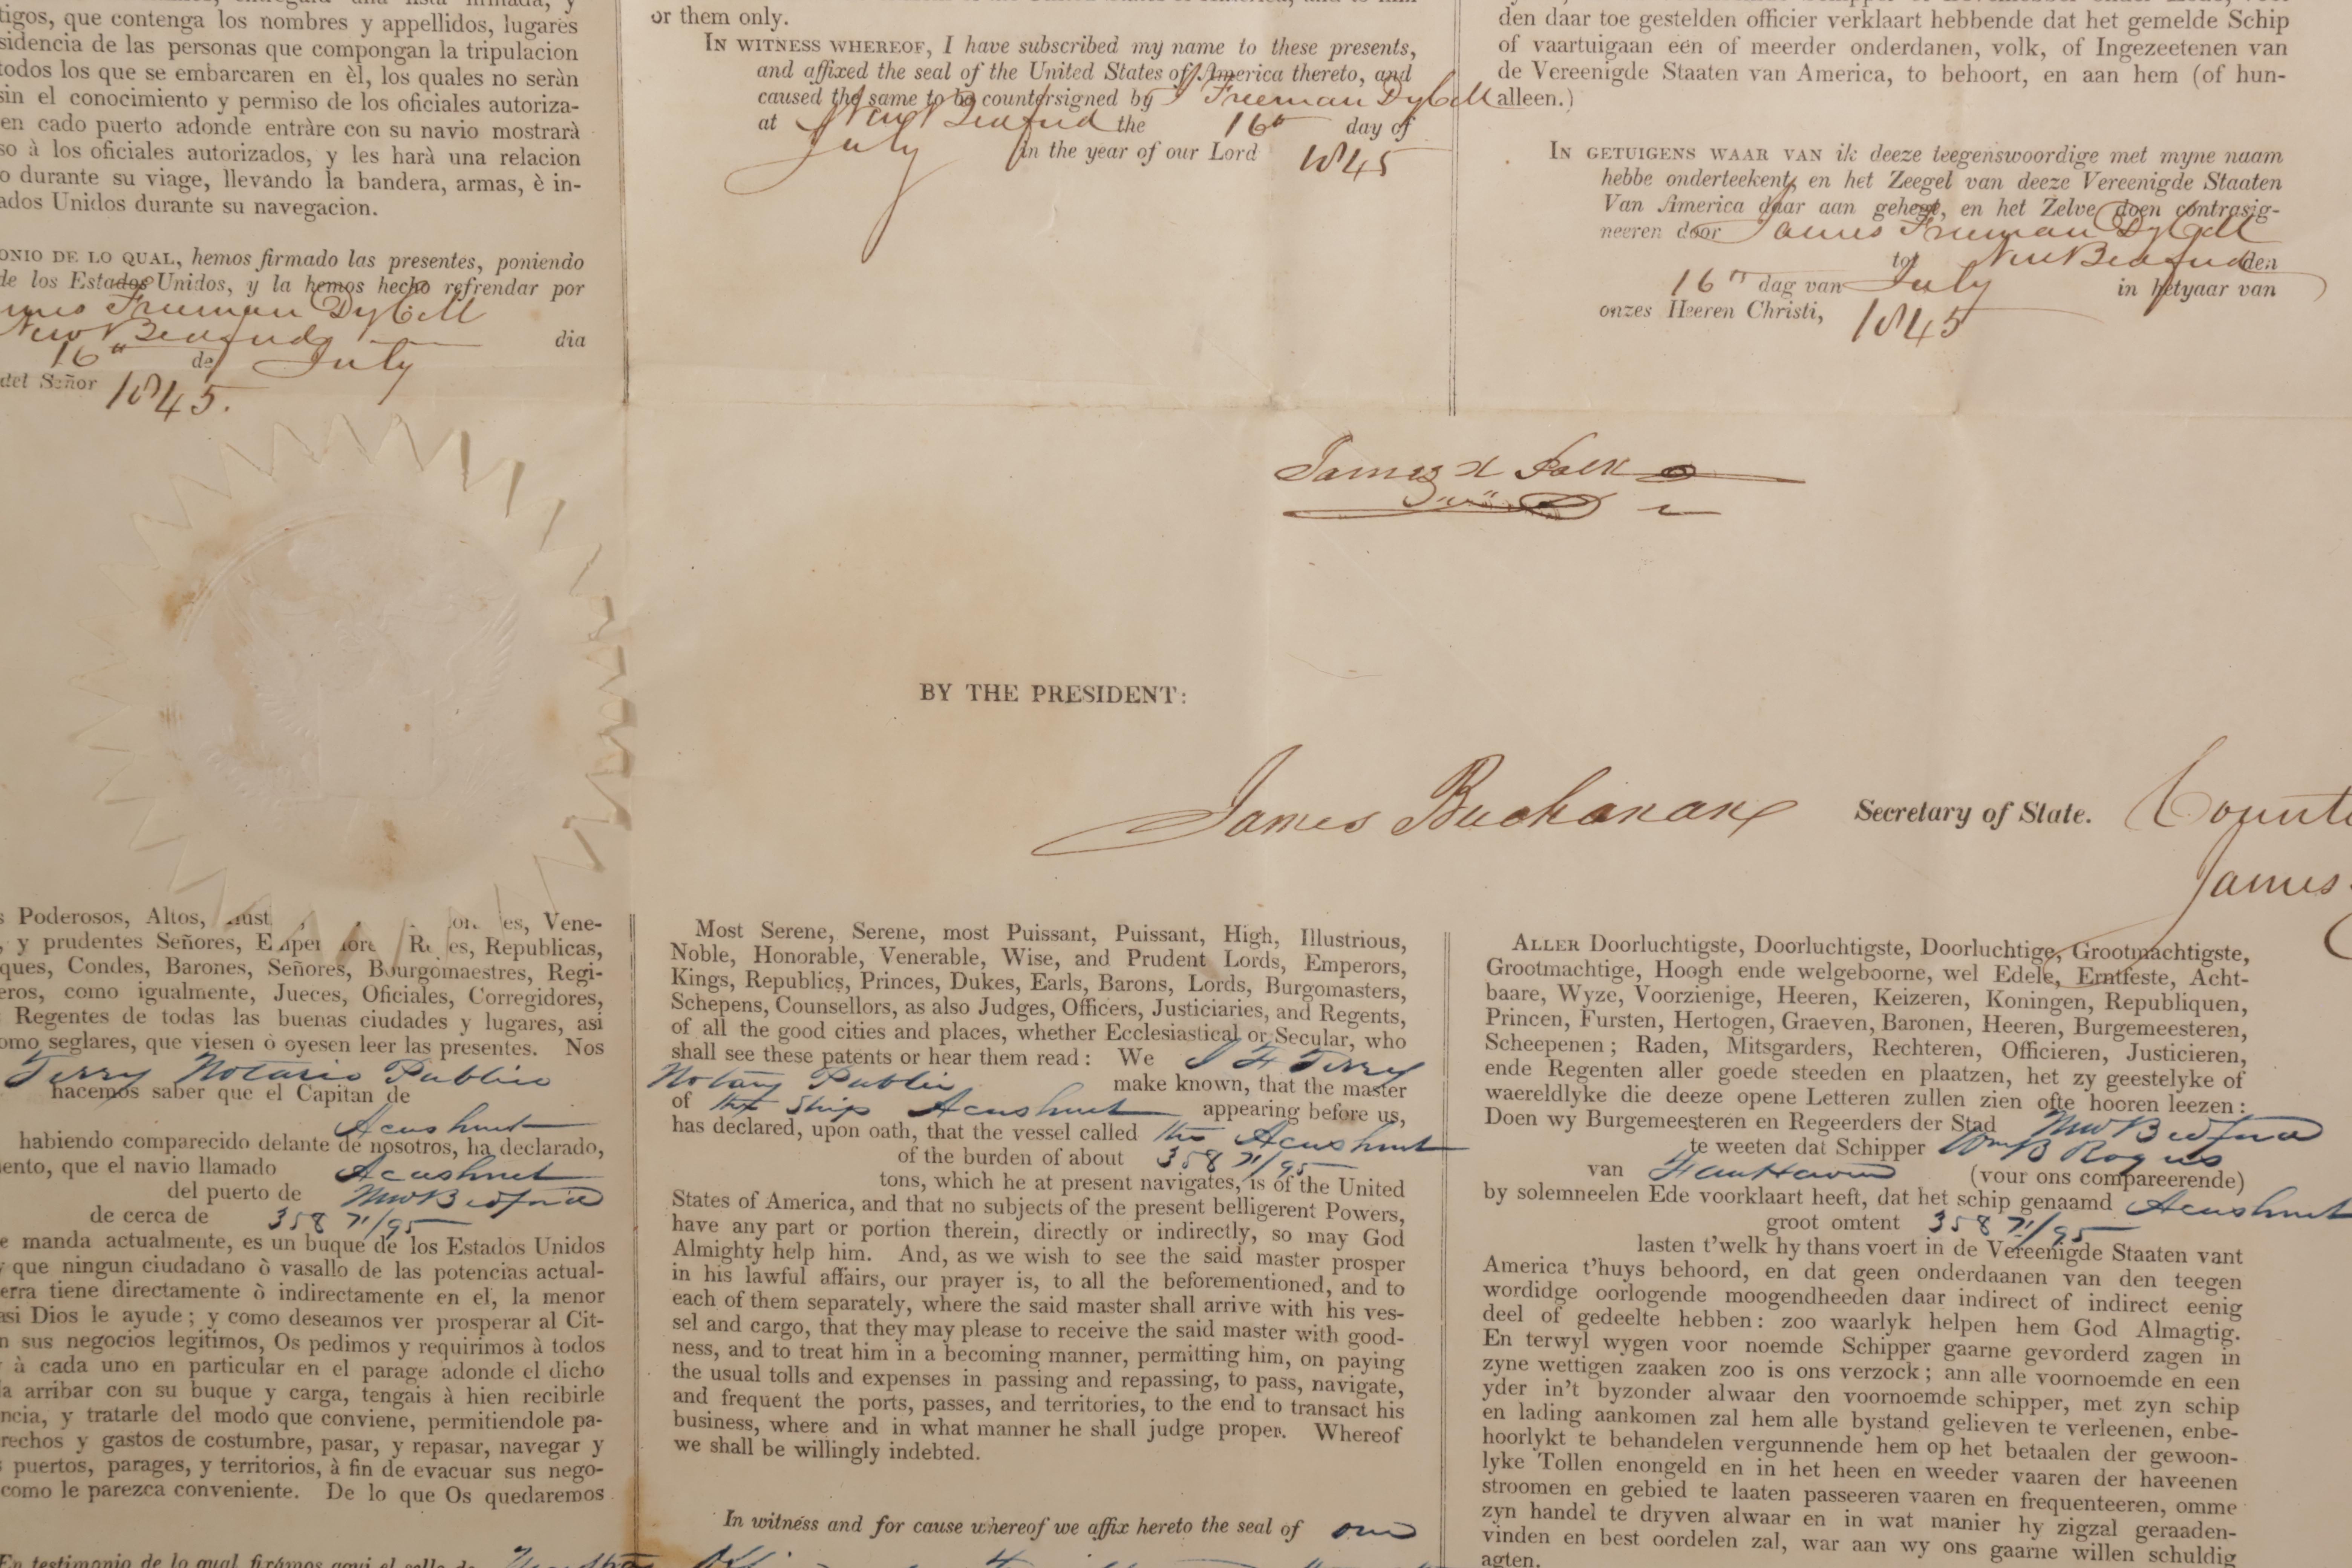 tigos, que contenga los nombres y appellidos, lugares
sidencia de las personas que compongan la tripulacion
todos los que se embarcaren en èl, los quales no seràn
sin el conocimiento y permiso de los oficiales autoriza-
en cado puerto adonde entràre con su navio mostrarà
so à los oficiales autorizados, y les harà una relacion
o durante su viage, llevando la bandera, armas, è in-
ados Unidos durante su navegacion.
ONIO DE LO QUAL, hemos firmado las presentes, poniendo
de los Estados Unidos, y la hemos hecho refrendar por
Freeman Dybell
New Bedford dia
16th de July
del Señor 1845.
or them only.
IN WITNESS WHEREOF, I have subscribed my name to these presents,
and affixed the seal of the United States of America thereto, and
caused the same to be countersigned by J Freeman Dybell
at New Bedford the 16th day of
July in the year of our Lord 1845
den daar toe gestelden officier verklaart hebbende dat het gemelde Schip
of vaartuigaan een of meerder onderdanen, volk, of Ingezeetenen van
de Vereenigde Staaten van America, to behoort, en aan hem (of hun-
alleen.)
IN GETUIGENS WAAR VAN ik deeze teegenswoordige met myne naam
hebbe onderteekent, en het Zeegel van deeze Vereenigde Staaten
Van America daar aan gehegt, en het Zelve doen contrasig-
neeren door James Freeman Dybell
tot New Bedford den
16th dag van July in hetyaar van
onzes Heeren Christi, 1845
James K Polk
BY THE PRESIDENT:
James Buchanan Secretary of State.
James
s Poderosos, Altos, es, Vene-
, y prudentes Señores, Republicas,
ques, Condes, Barones, Señores, Bourgomaestres, Regi-
eros, como igualmente, Jueces, Oficiales, Corregidores,
Regentes de todas las buenas ciudades y lugares, asi
omo seglares, que viesen ò oyesen leer las presentes. Nos
Terry Notario Publico
hacemos saber que el Capitan de
Acushnet
habiendo comparecido delante de nosotros, ha declarado,
ento, que el navio llamado Acushnet
del puerto de New Bedford
de cerca de 358 71/95
e manda actualmente, es un buque de los Estados Unidos
y que ningun ciudadano ò vasallo de las potencias actual-
erra tiene directamente ò indirectamente en el, la menor
asi Dios le ayude; y como deseamos ver prosperar al Cit-
n sus negocios legitimos, Os pedimos y requirimos à todos
y à cada uno en particular en el parage adonde el dicho
a arribar con su buque y carga, tengais à hien recibirle
ncia, y tratarle del modo que conviene, permitiendole pa-
rechos y gastos de costumbre, pasar, y repasar, navegar y
s puertos, parages, y territorios, à fin de evacuar sus nego-
como le parezca conveniente. De lo que Os quedaremos
En testimonio de lo qual firámos aqui el sello de
Most Serene, Serene, most Puissant, Puissant, High, Illustrious,
Noble, Honorable, Venerable, Wise, and Prudent Lords, Emperors,
Kings, Republics, Princes, Dukes, Earls, Barons, Lords, Burgomasters,
Schepens, Counsellors, as also Judges, Officers, Justiciaries, and Regents,
of all the good cities and places, whether Ecclesiastical or Secular, who
shall see these patents or hear them read: We J F Terry
Notary Public make known, that the master
of the Ship Acushnet appearing before us,
has declared, upon oath, that the vessel called the Acushnet
of the burden of about 358 71/95
tons, which he at present navigates, is of the United
States of America, and that no subjects of the present belligerent Powers,
have any part or portion therein, directly or indirectly, so may God
Almighty help him. And, as we wish to see the said master prosper
in his lawful affairs, our prayer is, to all the beforementioned, and to
each of them separately, where the said master shall arrive with his ves-
sel and cargo, that they may please to receive the said master with good-
ness, and to treat him in a becoming manner, permitting him, on paying
the usual tolls and expenses in passing and repassing, to pass, navigate,
and frequent the ports, passes, and territories, to the end to transact his
business, where and in what manner he shall judge proper. Whereof
we shall be willingly indebted.
In witness and for cause whereof we affix hereto the seal of our
ALLER Doorluchtigste, Doorluchtigste, Doorluchtige, Grootmachtigste,
Grootmachtige, Hoogh ende welgeboorne, wel Edele, Erntfeste, Acht-
baare, Wyze, Voorzienige, Heeren, Keizeren, Koningen, Republiquen,
Princen, Fursten, Hertogen, Graeven, Baronen, Heeren, Burgemeesteren,
Scheepenen; Raden, Mitsgarders, Rechteren, Officieren, Justicieren,
ende Regenten aller goede steeden en plaatzen, het zy geestelyke of
waereldlyke die deeze opene Letteren zullen zien ofte hooren leezen:
Doen wy Burgemeesteren en Regeerders der Stad New Bedford
te weeten dat Schipper Wm B Rogers
van FairHaven (vour ons compareerende)
by solemneelen Ede voorklaart heeft, dat het schip genaamd Acushnet
groot omtent 358 71/95
lasten t'welk hy thans voert in de Vereenigde Staaten vant
America t'huys behoord, en dat geen onderdaanen van den teegen
wordidge oorlogende moogendheeden daar indirect of indirect eenig
deel of gedeelte hebben: zoo waarlyk helpen hem God Almagtig.
En terwyl wygen voor noemde Schipper gaarne gevorderd zagen in
zyne wettigen zaaken zoo is ons verzock; ann alle voornoemde en een
yder in't byzonder alwaar den voornoemde schipper, met zyn schip
en lading aankomen zal hem alle bystand gelieven te verleenen, enbe-
hoorlykt te behandelen vergunnende hem op het betaalen der gewoon-
lyke Tollen enongeld en in het heen en weeder vaaren der haveenen
stroomen en gebied te laaten passeeren vaaren en frequenteeren, omme
zyn handel te dryven alwaar en in wat manier hy zigzal geraaden-
vinden en best oordelen zal, war aan wy ons gaarne willen schuldig
agten.